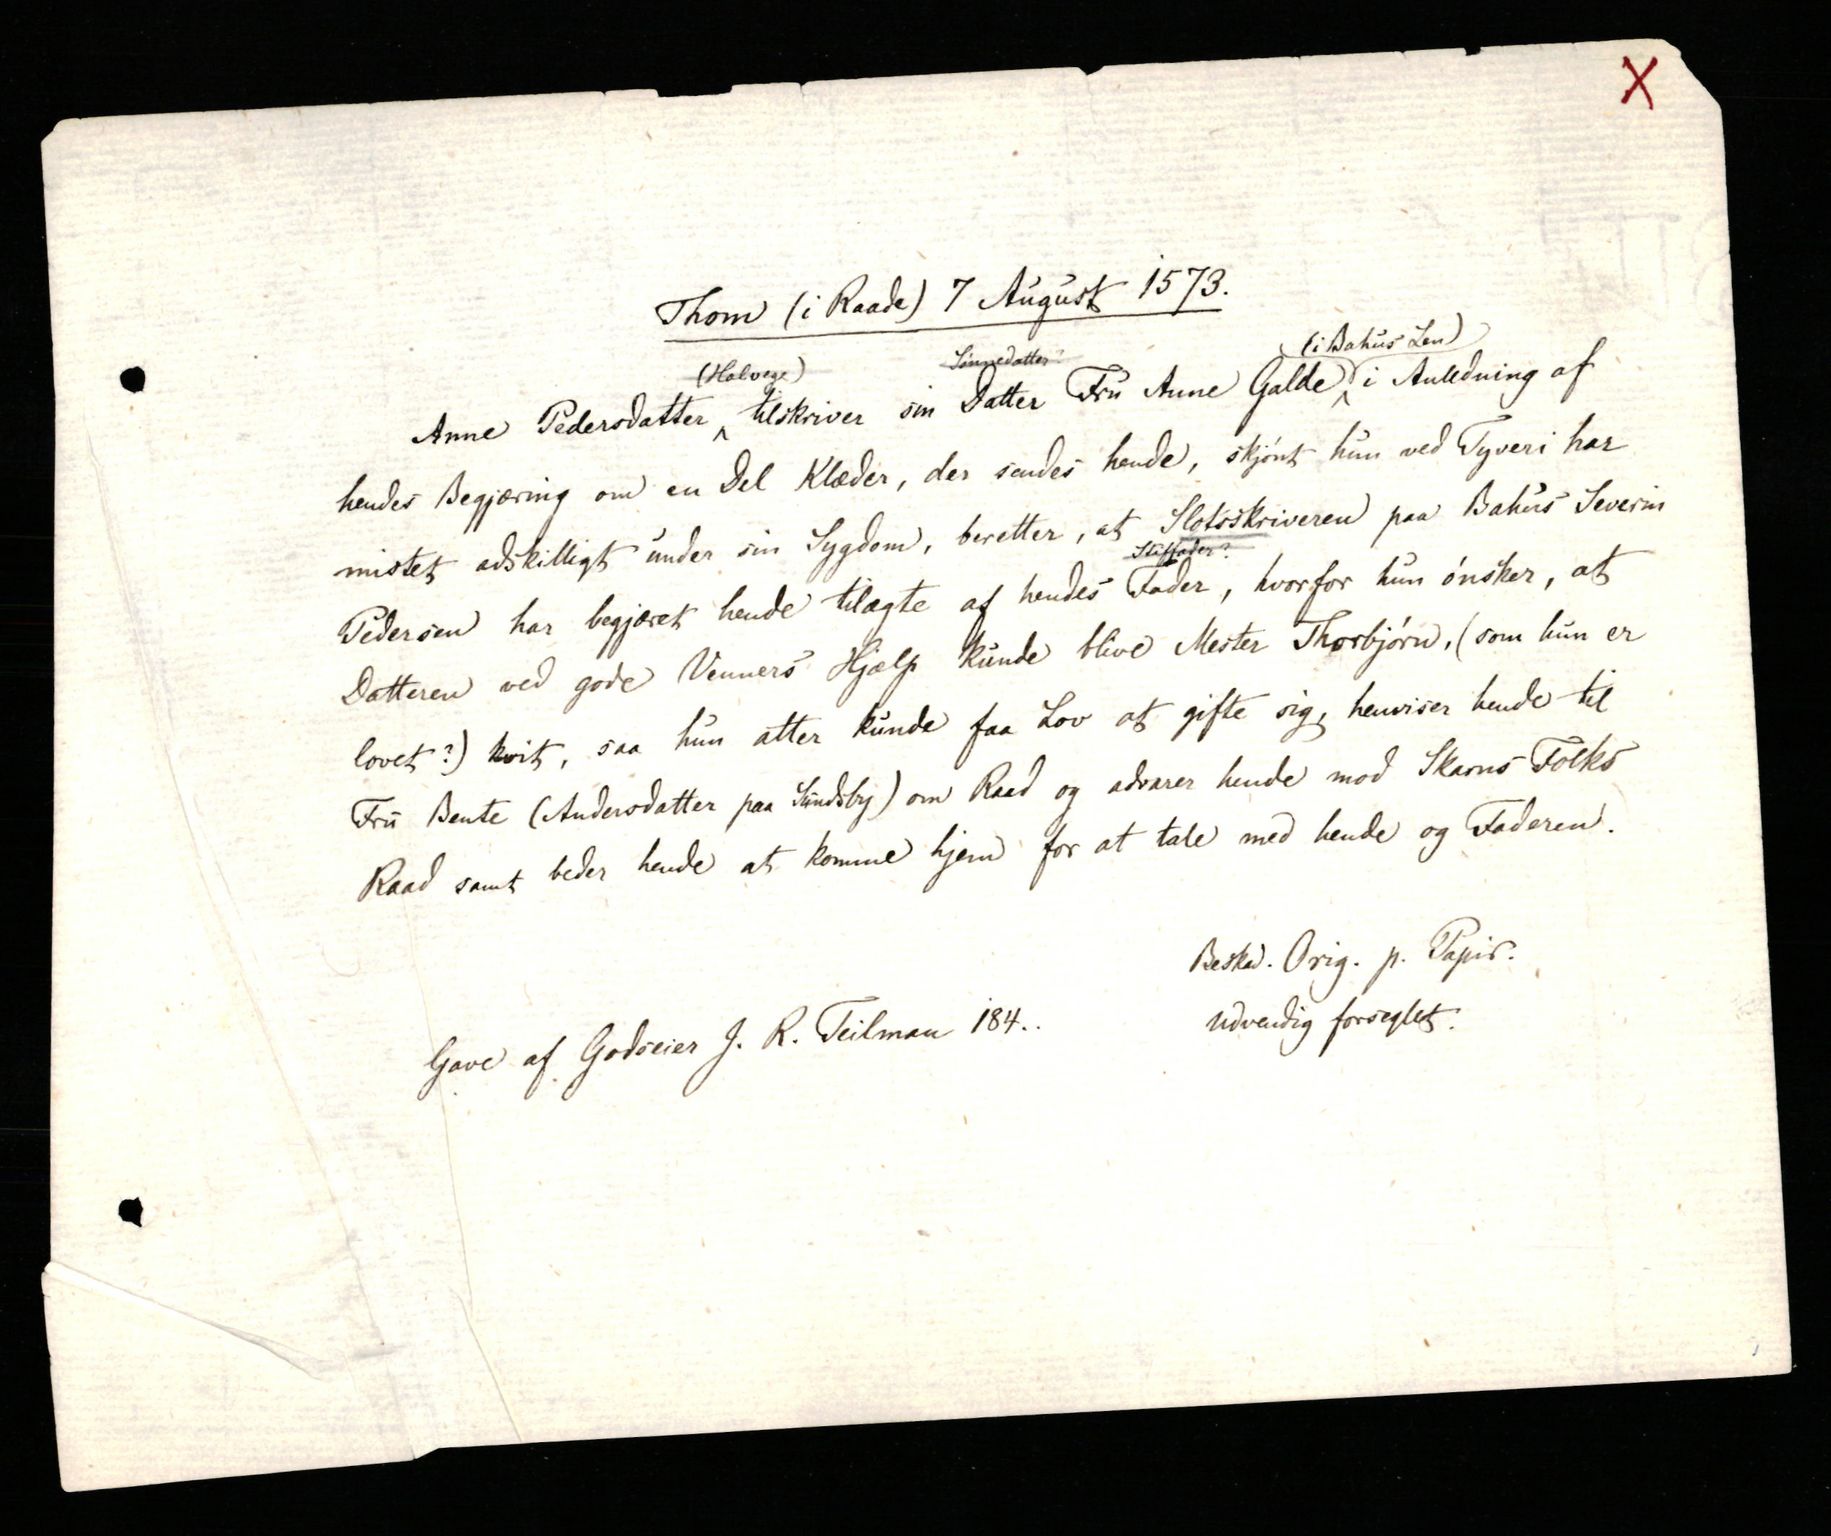 X
Thom (i Raade) 7 August 1573.
(Halvege) Sønnedatter? (i Bahus Len)
Anne Pedersdatter tilskriver sin Datter Fru Anne Galde i Anledning af
hendes Begjæring om en Del Klæder, der sendes hende, skjønt hun ved Tyveri har
mistet adskilligt under sin Sygdom, beretter, at Slotsskriveren paa Bahus Severin
Stiffader?
Pedersen har begjæret hende tilægte af hendes Fader, hvorfor hun ønsker, at
Datteren ved gode Venners Hjælp kunde blive Mester Thorbjørn, (som hun er
lovet?) kvit, saa hun atter kunde faa Lov at gifte sig, henviser hende til
Fru Bente (Andersdatter paa Sundsby) om Raad og advarer hende mod Skarns Folks
Raad samt beder hende at komme hjem for at tale med hende og Faderen.
Beskad. Orig. p. Papir.
udvendig forseglet.
Gave af Godseier J. R. Teilman 184..